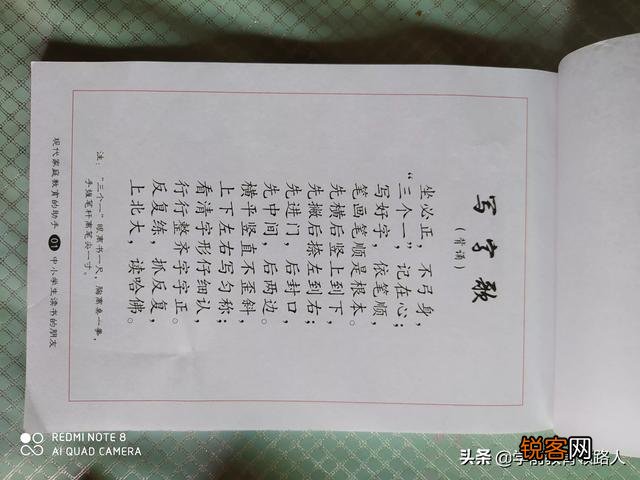 写字歌
(背诵)
坐必正，不弓身，
“三个一”，记在心；
写好字，依笔顺，
笔画笔顺是根本。
先横后竖上到下，
先撇后捺左到右；
先进门，后封口，
先中间，后两边。
横平竖直不歪斜，
上下左右写匀称；
看清字形仔细认，
行行整齐字字正。
反复练，抓反复，
上北大，读哈佛。
注：“三个一”眼离书一尺，胸离桌一拳，
手握笔杆离笔尖一寸。
现代家庭教育的助手 01 中小学生读书的朋友
REDMI NOTE 8
AI QUAD CAMERA
头条 @学前教育铁路人
锐客网